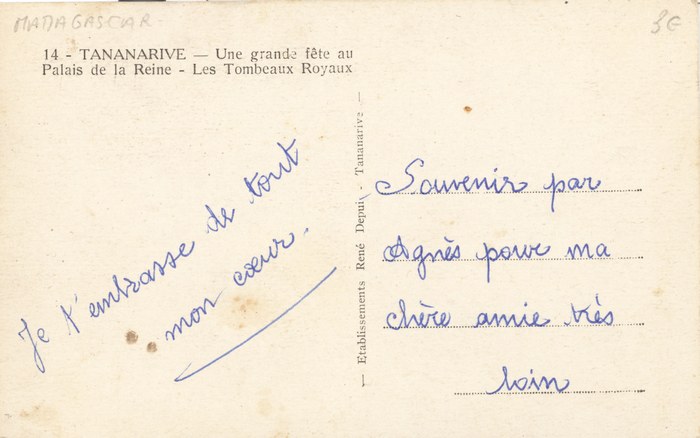 MADAGASCAR
3€
14 - TANANARIVE — Une grande fête au
Palais de la Reine - Les Tombeaux Royaux
Je t'embrasse de tout
mon cœur.
— Etablissements René Depui - Tananarive —
Souvenir par
Agnès pour ma
chère amie très
loin